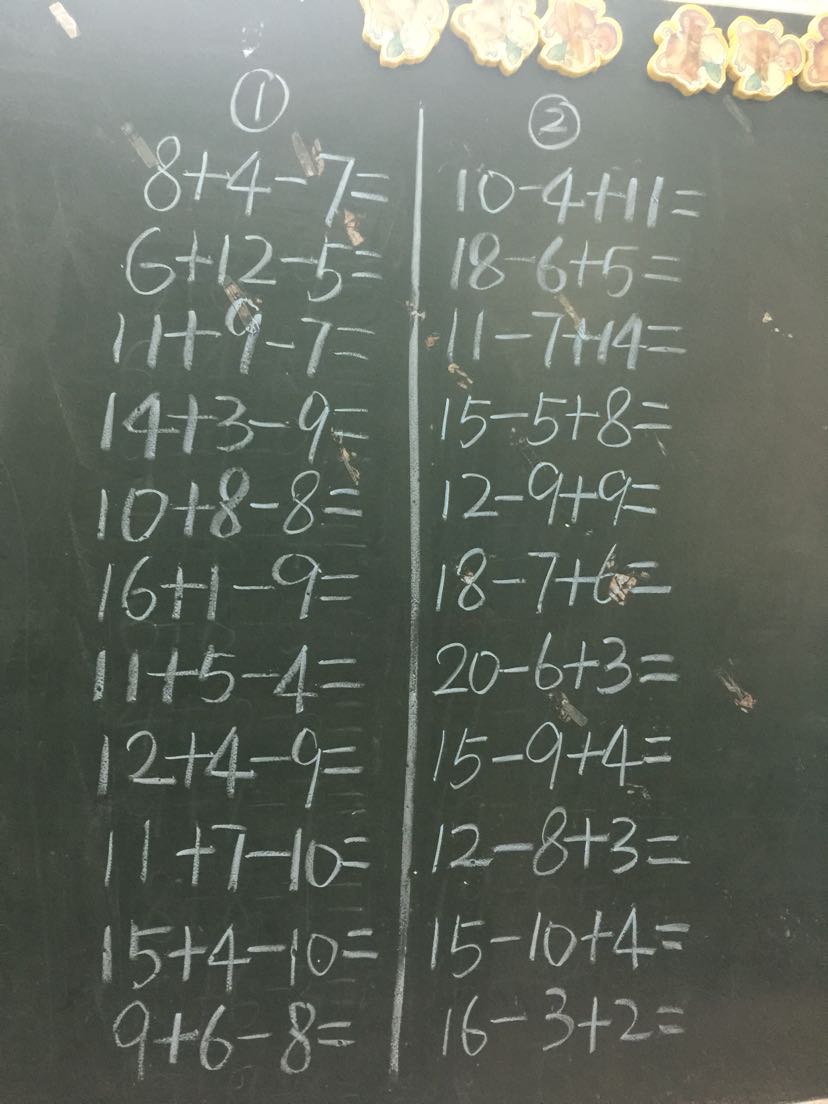 ①
8+4-7=
6+12-5=
11+9-7=
14+3-9=
10+8-8=
16+1-9=
11+5-4=
12+4-9=
11+7-10=
15+4-10=
9+6-8=
②
10-4+11=
18-6+5=
11-7+14=
15-5+8=
12-9+9=
18-7+6=
20-6+3=
15-9+4=
12-8+3=
15-10+4=
16-3+2=